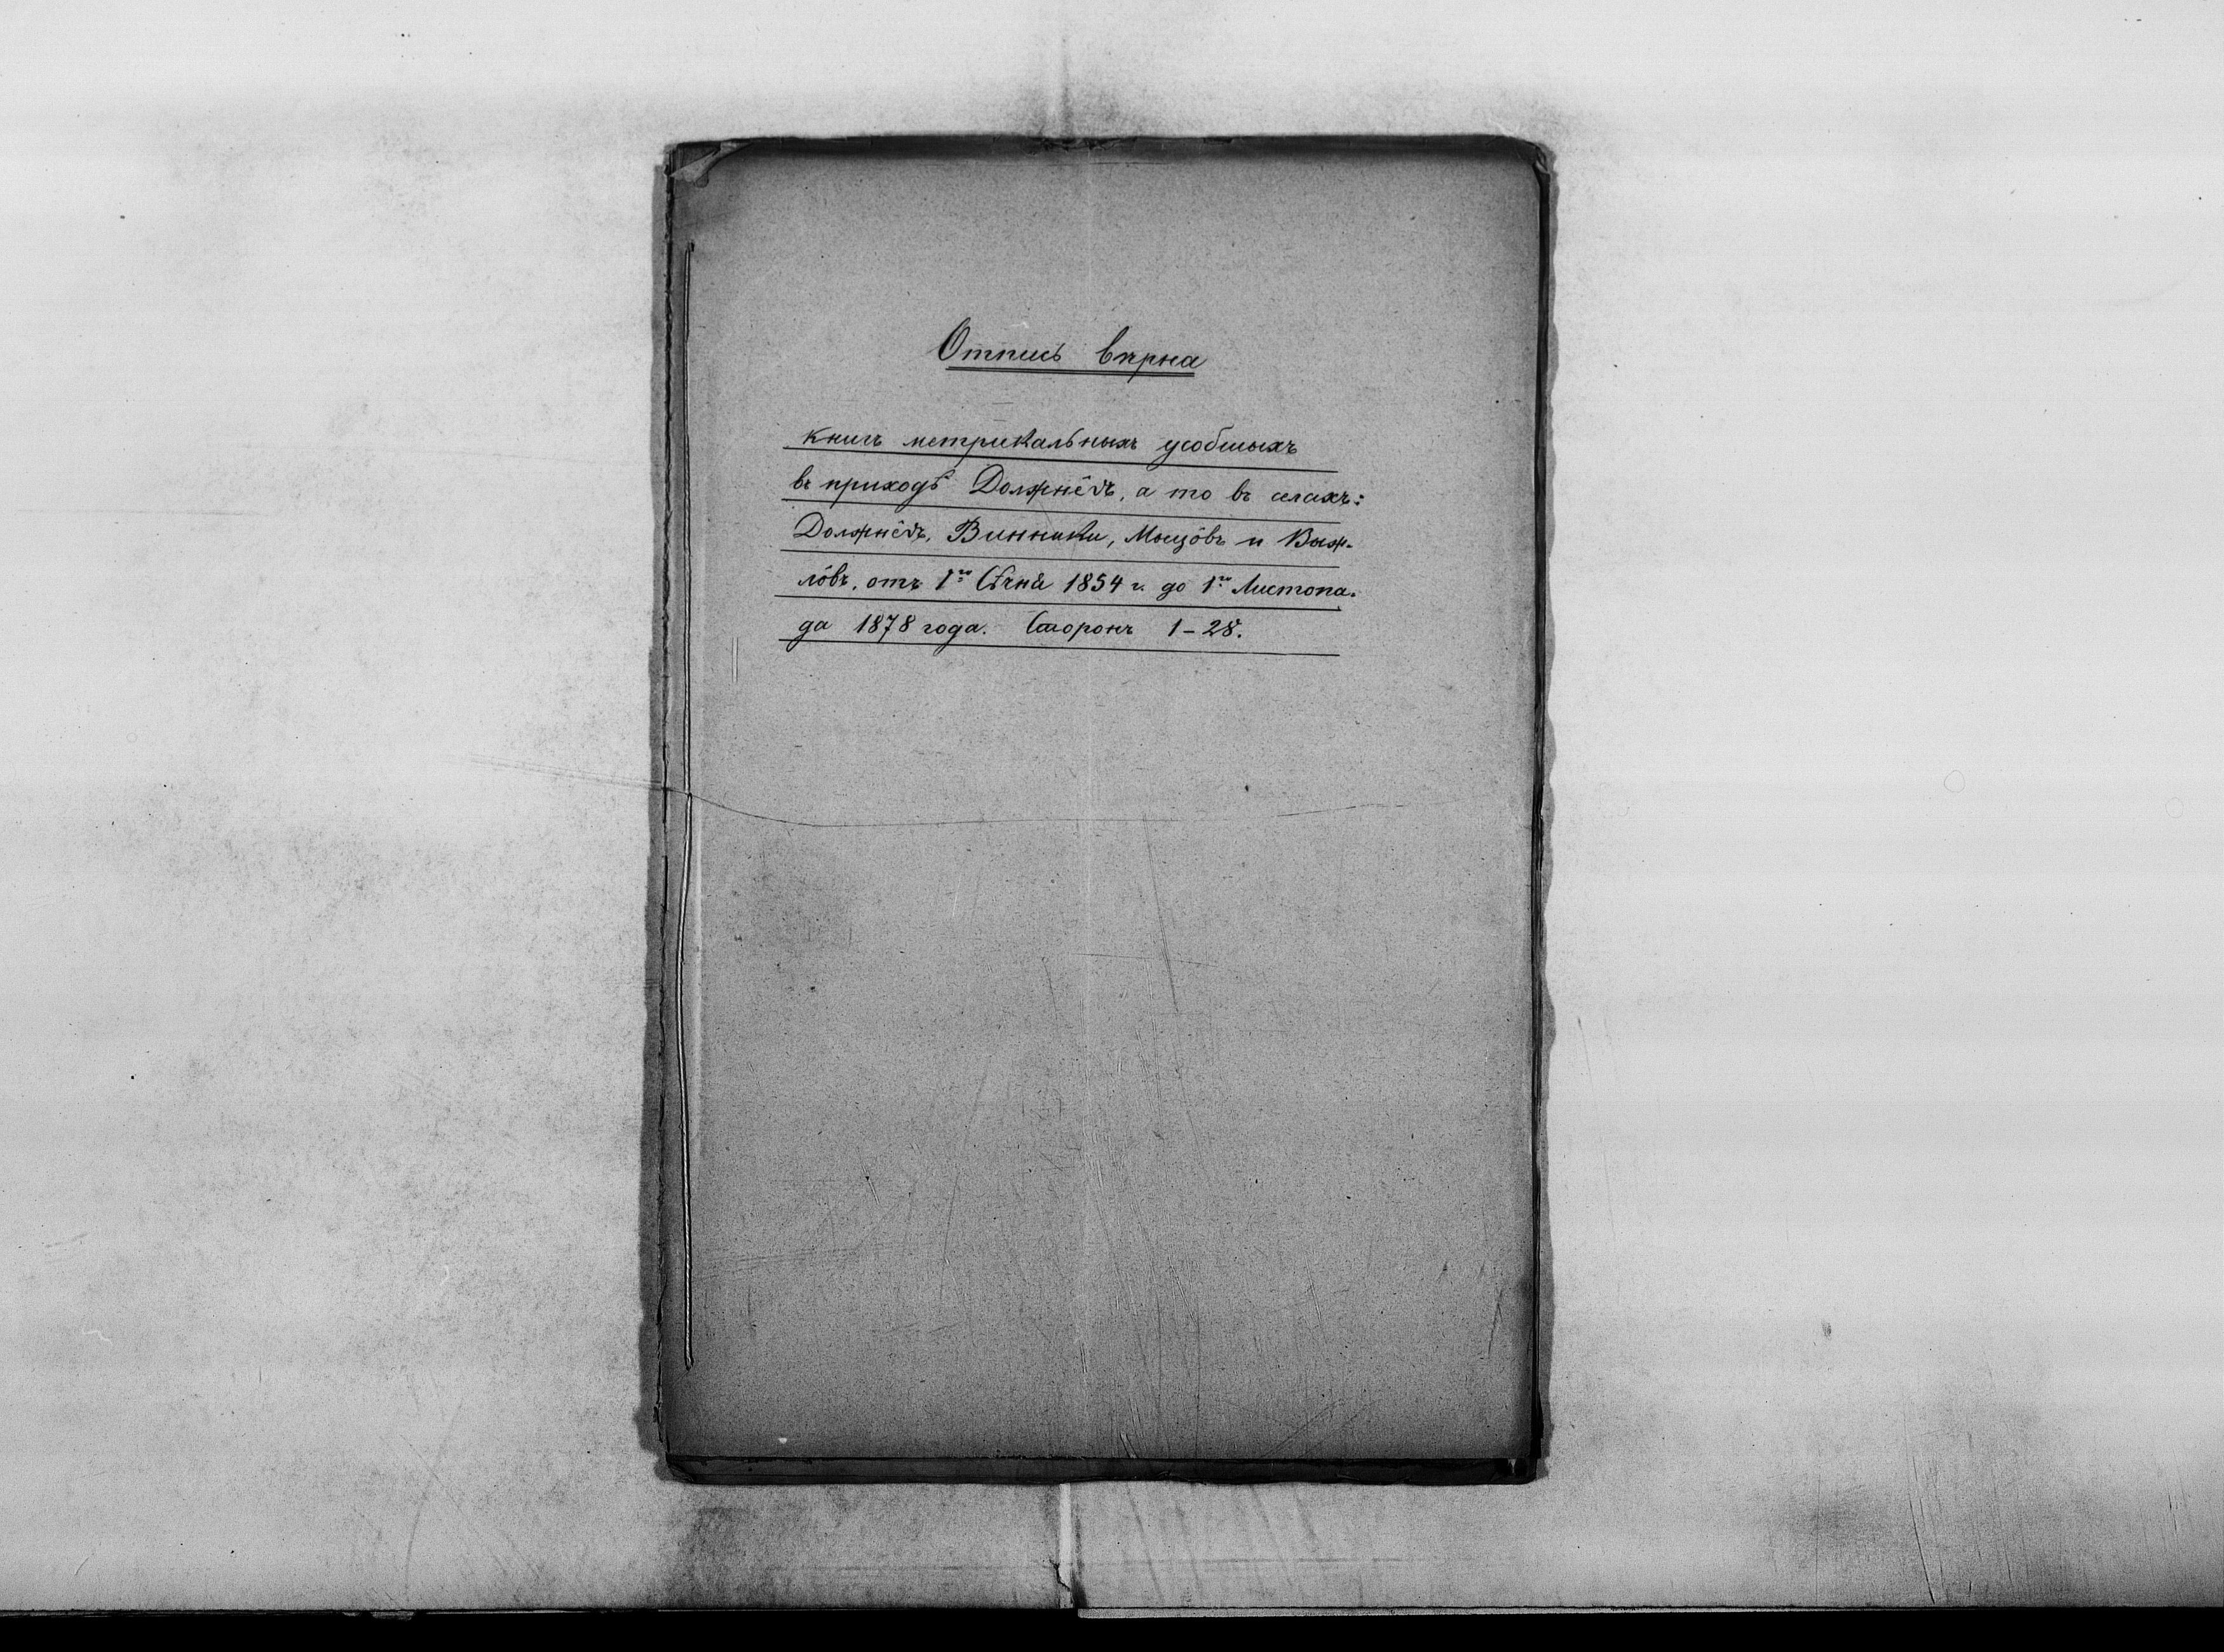 Отпись вѣрна
книгъ метрикальныхъ усобшыхъ
въ приходѣ Должнêвъ, а то въ селахъ:
Должнêвъ, Винники, Мыцôвъ и Выж-
лôвъ, отъ 1го Сѣчня 1854 г. до 1го Листопа-
да 1878 года. Сторонъ 1-28.